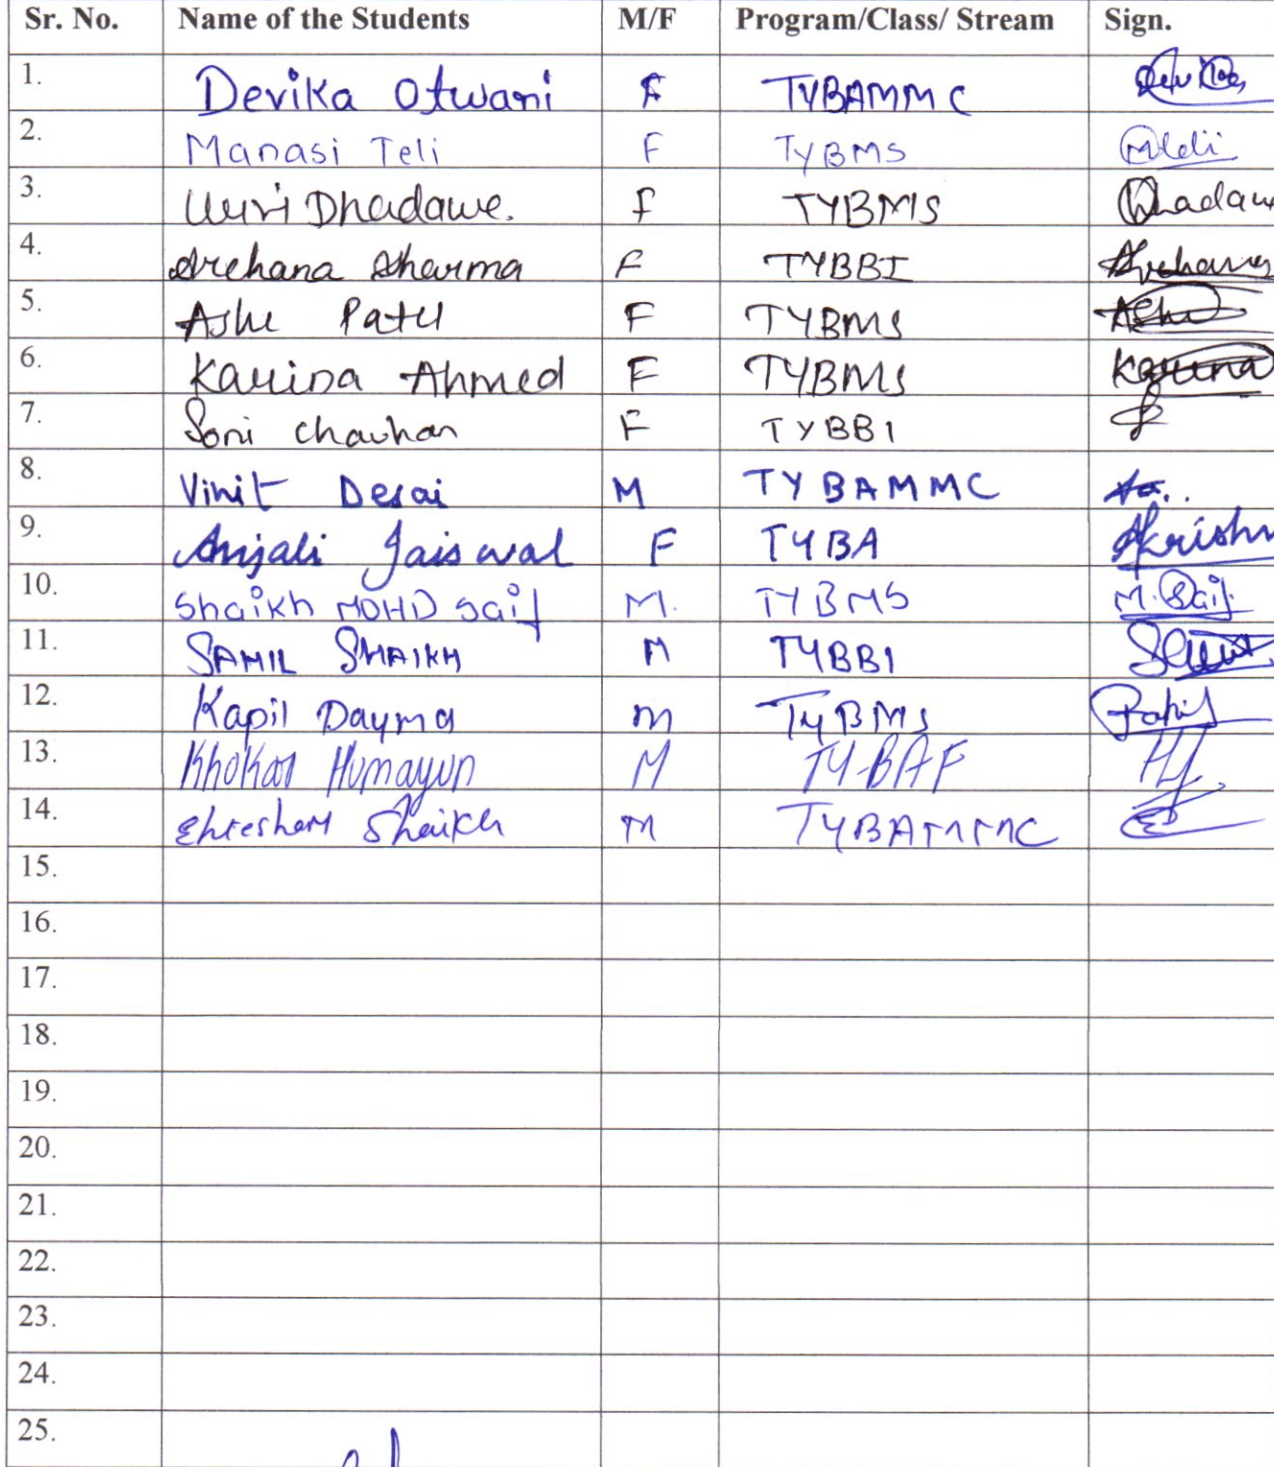 Sr. No. Name of the Students M/F Program/Class/ Stream Sign.
1. Devika Otwani F TYBAMMC Devika
2. Manasi Teli F TYBMS MTeli
3. Urvi Dhadawe. F TYBMS Dhadaw
4. Archana Sharma F TYBBI Archana
5. Ashi Patel F TYBMS Ashi
6. Karina Ahmed F TYBMS Karina
7. Soni Chauhan F TYBBI
8. Vinit Desai M TYBAMMC
9. Anjali Jaiswal F TYBA
10. Shaikh MOHD Saif M. TYBMS M.Saif
11. SAHIL SHAIKH M TYBBI
12. Kapil Dayma M TYBMS
13. Khokar Humayun M TYBAF
14. Ehtesham Shaikh M TYBAMMC
15.
16.
17.
18.
19.
20.
21.
22.
23.
24.
25.